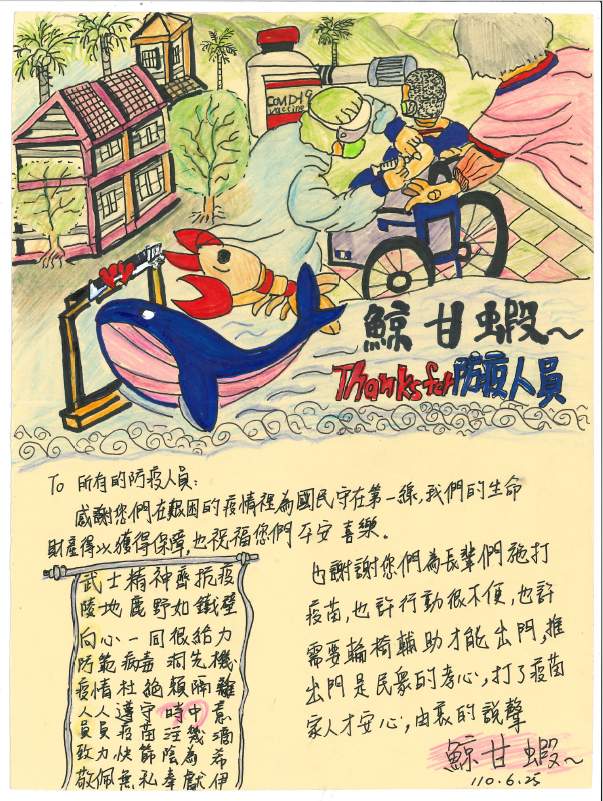 COVID-19
Vaccine
鯨甘蝦~
Thanks for防疫人員
To 所有的防疫人員:
感謝您們在艱困的疫情裡為國民守在第一線,我們的生命
財產得以獲得保障,也祝福您們平安喜樂。
武士精神齊抗疫
陵地鹿野如鐵壁
向心一同很給力
防範病毒洞先機
疫情杜絕賴隔離
人人遵守時中意
員員疫苗注幾滴
致力快篩陰為希
敬佩無私奉獻伊
也謝謝您們為長輩們施打
疫苗,也許行動很不便,也許
需要輪椅輔助才能出門,推
出門是民眾的孝心,打了疫苗
家人才安心,由衷的說聲
鯨甘蝦~
110.6.25